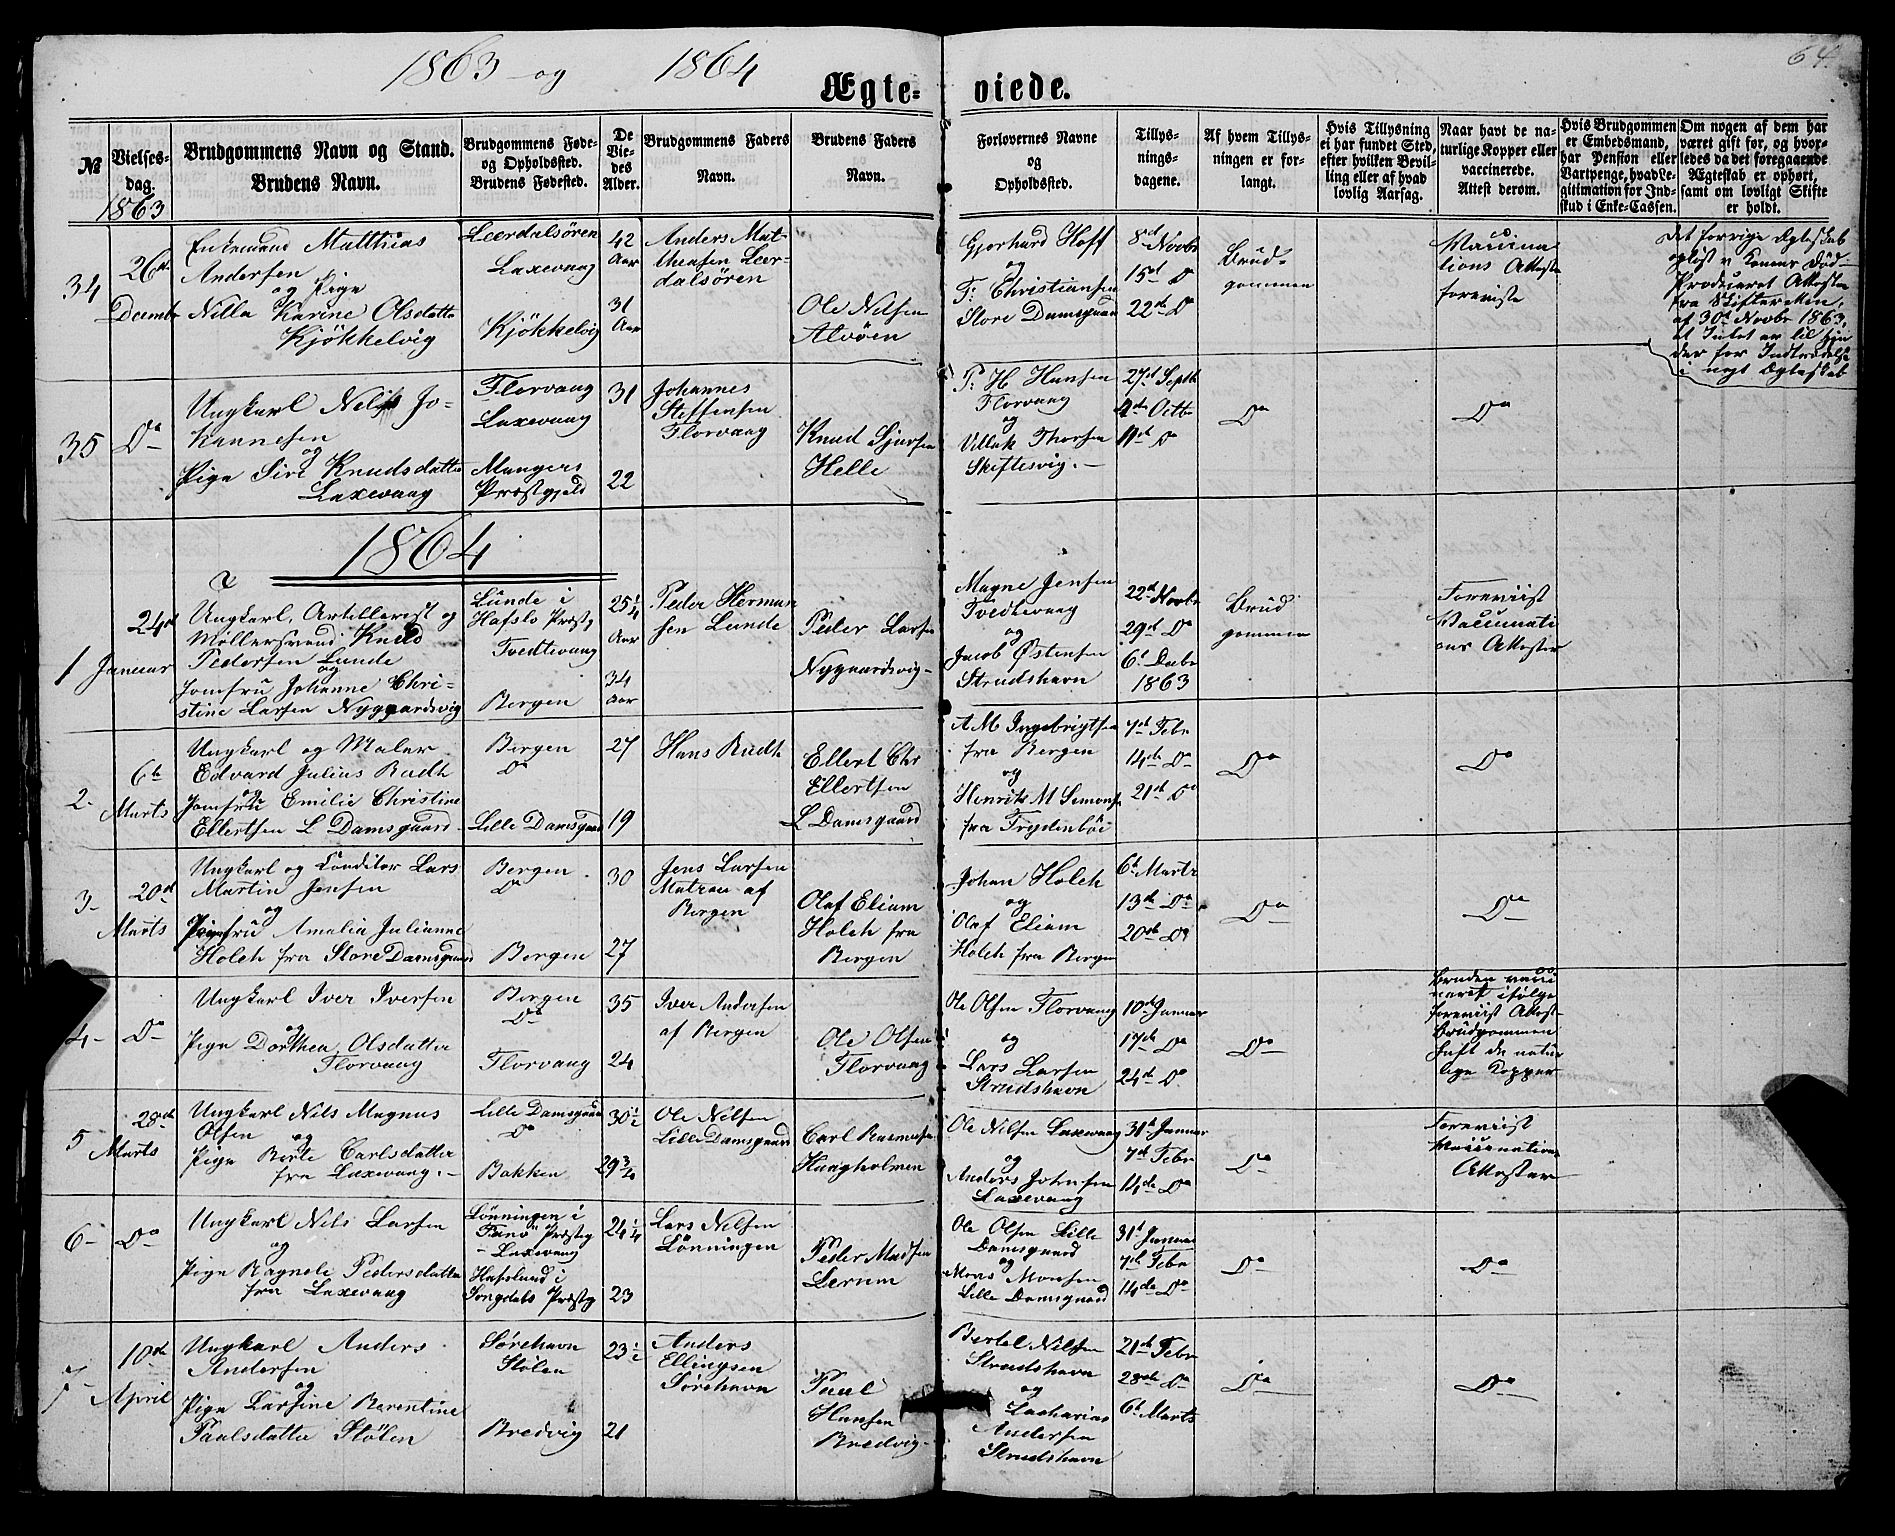 1863 og 1864
64.
Ægte-viede.
№
Vielses-
dag.
1863
Brudgommens Navn og Stand.
Brudens Navn.
Brudgommens Føde-
og Opholdssted.
Brudens Fødested.
De
Vie-
des
Alder.
Brudgommens Faders
Navn.
Brudens Faders
Navn.
Forlovernes Navne
og
Opholdssted.
Tillys-
nings-
dagene.
Af hvem Tillys-
ningen er for-
langt.
Hvis Tillysning
ei har fundet Sted,
efter hvilken Bevil-
ling eller af hvad
lovlig Aarsag.
Naar havt de na-
turlige Kopper eller
vaccinerede.
Attest derom.
Hvis Brudgommen
er Embedsmand,
har Pension eller
Vartpenge, hvad Le-
gitimation for Ind-
skud i Enke-Cassen.
Om nogen af dem har
været gift før, og hvor-
ledes da det foregaaende
Ægteskab er ophørt,
samt om lovligt Skifte
er holdt.
34
26de
Decembr
Enkemand Matthias
Andersen
og Pige
Nilla Karine Olsdatter
Kjökkelvig
Leerdalsören
Laxevaag
Kjökkelvig
42
Aar
31
Aar
Anders Mat-
thensen Leer-
dalsören
Ole Nilsen
Alvöen
Gjerhard Hoff
og
F: Christiansen
Store Damsgaard
8de Novbr
15de Do
22de Do
Brud-
gommen
Vaccina-
tions Attester
foreviste
Det forrige Ægteskab
opløst v Konens Död
Produceret Attester
fra Skifteretten,
af 30te Novbr 1863,
at Intet er til hin
der for Indtrædelse
i nyt Ægteskab
35
Do
Ungkarl Nels Jo-
hannesen
og
Pige Siri Knudsdatter
Laxevaag
Florvaag
Laxevaag
Mangers
Præstgjeld
31
22
Johannes
Steffensen
Florvaag
Knud Sjursen
Helle
P: H Hansen
Florvaag
og
Villak Thorsen
Skiftesvig.
27de Septbr
4de Octbr
11de Do
Do
Do
1864
1
24de
Januar
Ungkarl, Artillerist og
Möllersvend Knud
Pedersen Lunde
og
Jomfru Johanne Chri-
stine Larsen Nygaardsvig
Lunde i
Hafslo Præstg
Tvedtevaag
Bergen
25 1/4
Aar
34
Aar
Peder Herman
sen Lunde
Peder Larsen
Nygaardsvig
Magne Jensen
Tvedtevaag
og
Jacob Østensen
Strudshavn
22de Novbr
29de Do
6te Decbr
1863
Brud
gommen
Foreviist
Vaccinati
ons Attester
2
6te
Marts
Ungkarl og Maler
Edvard Julius Rudh
og
Jomfru Emilie Christine
Ellertsen L Damsgaard
Bergen
Do
Lille Damsgaard
27
19
Hans Rudh
Ellert Chr
Ellertsen
L Damsgaard
A M Ingebrigtsen
fra Bergen
og
Henrik M Simonsen
fra Frydenböe
7de Febr
14de Do
21de Do
Do
Do
3
20de
Marts
Ungkarl og Conditor Lars
Martin Jensen
og
Jomfru Amalia Julianne
Holch fra Store Damsgaard
Bergen
Do
Bergen
30
27
Jens Larsen
Matros af
Bergen
Olaf Eliam
Holch fra
Bergen
Johan Holch
og
Olaf Eliam
Holch fra Bergen
6te Marts
13de Do
20de Do
Do
Do
4
Do
Ungkarl Iver Iversen
og
Pige Dorthea Olsdatter
Florvaag
Bergen
Do
Florvaag
35
24
Iver Andersen
af Bergen
Ole Olsen
Florvaag
Ole Olsen Florvaag
og
Lars Larsen
Strudshavn
10de Januar
17de Do
24de Do
Do
Bruden vacci
neret ifölge
foreviist Attest
Brudgommen
haft de natur
lige Kopper
5
28de
Marts
Ungkarl Nils Magnus
Olsen
og
Pige Berte Carlsdatter
fra Laxevaag.
Lille Damsgaard
Do
Bakken
30 1/2
29 3/4
Ole Nilsen
Lille Damsgaard
Carl Rasmusen
Haugholmen
Ole Nilsen Laxevaag
og
Anders Johnsen
Laxevaag
31te Januar
7de Febr
14de Do
Do
Foreviist
Vaccinations
Attester
6
Do
Ungkarl Nils Larsen
og
Pige Ragnele Pedersdatter
fra Laxevaag
Lönningen i
Fanö Præstg
Laxevaag
Hafslund i
Songdals Præstg
24 1/4
23
Lars Nilsen
Lönningen
Peder Madsen
Lerum
Ole Olsen Lille
Damsgaard
og
Mons Monsen
Lille Damsgaard
31te Januar
7de Febr
14de Do
Do
Do
7
10de
April
Ungkarl Anders
Andersen
og
Pige Larsine Berentine
Paulsdatter Stölen
Sørehavn
Stölen
Bredvig
23 1/2
21
Anders
Ellingsen
Sørehavn
Paul
Hansen
Bredvig
Bertel Nilsen
Strudshavn
og
Zacharias
Andersen
Strudshavn
21de Febr
28de Do
6te Marts
Do
Do